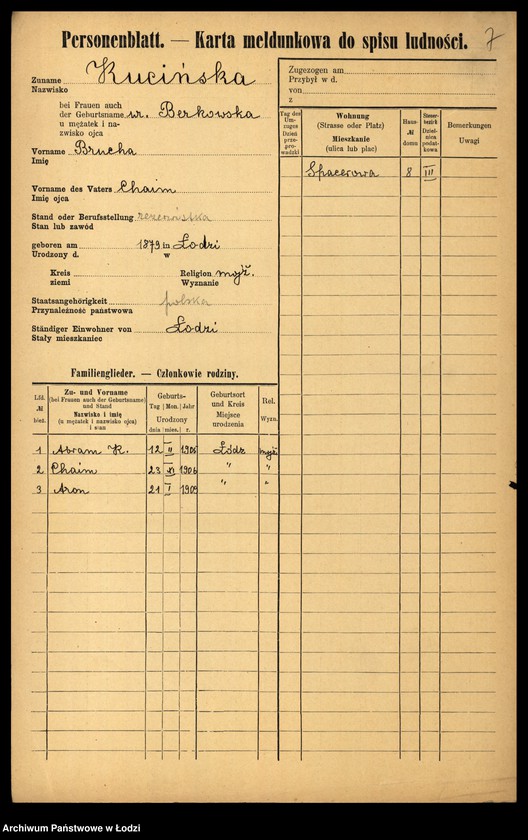 Personenblatt. — Karta meldunkowa do spisu ludności.
7
Zuname Kucińska
Nazwisko
bei Frauen auch
der Geburtsname ur. Berkowska
u mężatek i na-
zwisko ojca
Vorname Brucha
Imię
Vorname des Vaters Chaim
Imię ojca
Stand oder Berufsstellung rezerwistka
Stan lub zawód
geboren am 1879 in Łodzi
Urodzony d. w
Kreis Religion mojż.
ziemi Wyznanie
Staatsangehörigkeit polska
Przynależność państwowa
Ständiger Einwohner von Łodzi
Stały mieszkaniec
Zugezogen am
Przybył w d.
von
z
Tag des Um-zuges Dzień prze-pro-wadzki
Wohnung (Strasse oder Platz) Mieszkanie (ulica lub plac)
Haus- № domu
Steuer-bezirk Dziel-nica podat-kowa
Bemerkungen Uwagi
Spacerowa 8 III
Familienglieder. — Członkowie rodziny.
Lfd. № bież.
Zu- und Vorname (bei Frauen auch der Geburtsname) und Stand Nazwisko i imię (u mężatek i nazwisko ojca) i stan
Geburts- Tag Mon. Jahr Urodzony dnia mies. r.
Geburtsort und Kreis Miejsce urodzenia
Rel. Wyzn.
1 Abram H. 12 II 1905 Łódz mojż
2 Chaim 23 XI 1906 " "
3 Aron 21 I 1909 " "
Archiwum Państwowe w Łodzi